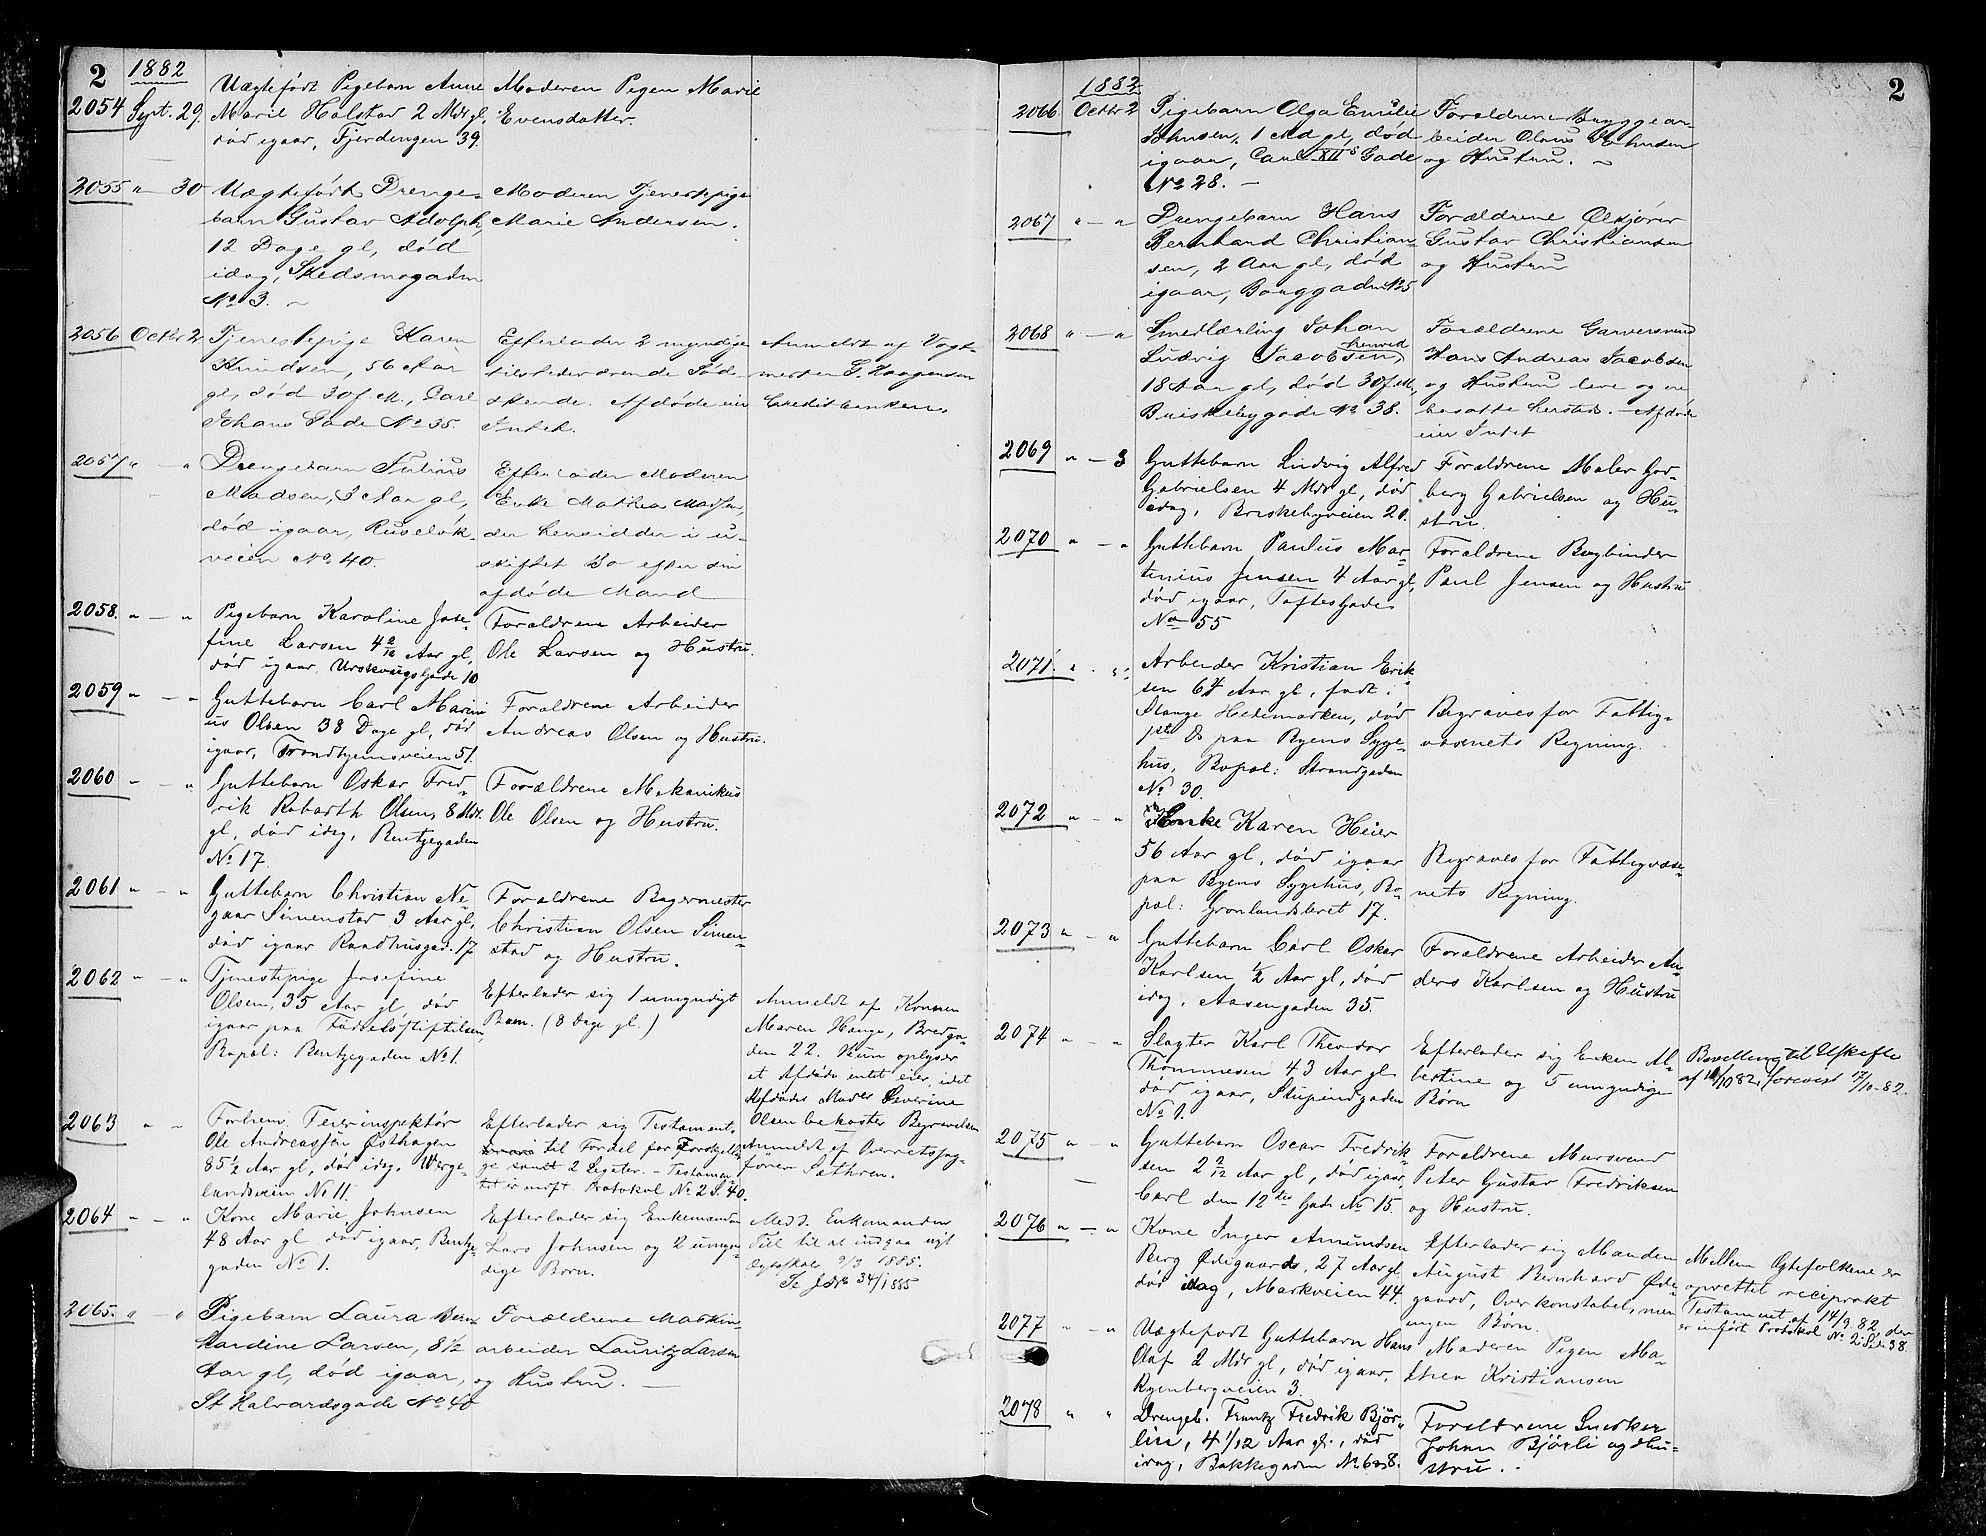 2
1882
2054 Sept. 29. Uægtefødt Pigebarn Anne
Marie Halstad 2 Mdr gl,
død igaar, Fjerdingen 39.
Moderen Pigen Marie
Evensdatter.
2055 " 30 Uægtefødt Drenge-
barn Gustav Adolph,
12 Dage gl, død
idag, Skedsmogaden
No 3. –
Moderen Tjenestepige
Marie Andersen.
2056 Octbr 2 Tjenestepige Karen
Knudsen, 56 Aar
gl, død 30 f. M., Carl
Johans Gade No 35.
Efterlader 2 myndige
tilstedeværende Sød-
skende. Afdøde eier
Intet.
Anmeldt af Vogt-
mester T. Haagensen
Creditbanken.
2057 " — " Drengebarn Julius
Madsen, 3 Aar gl,
død igaar, Ruseløk-
veien No 40.
Efterlader Moderen
Enke Mathea Madsen,
der hensidder i u-
skiftet Bo efter sin
afdøde Mand
2058. " — " Pigebarn Karoline Jose-
fine Larsen 4 2/12 Aar gl,
død igaar, Urskougsgade 10
Forældrene Arbeider
Ole Larsen og Hustru.
2059 " — " Guttebarn Carl Marini
us Olsen 38 Dage gl, død
igaar, Trondhjemsveien 51.
Forældrene Arbeider
Andreas Olsen og Hustru.
2060 " — " Guttebarn Oskar Fred-
rik Robarth Olsen, 8 Mdr.
gl, død idag, Rentzegaden
No 17.
Forældrene Mekanikus
Ole Olsen og Hustru.
2061 " — " Guttebarn Christian Ne-
gaar Simenstad 3 Aar gl,
død igaar Raadhusgad. 17
Forældrene Bagermester
Christian Olsen Simen-
stad og Hustru.
2062 " — " Tjenestepige Josefine
Olsen, 35 Aar gl, død
igaar paa Fødselsstiftelsen,
Bopæl: Rentzegaden No 1.
Efterlader sig 1 umyndigt
Barn. (8 Dage gl.)
Anmeldt af Konen
Maren Hauge, Bredga-
den 22. Hun oplyser
at Afdøde intet eier, idet
Afdødes Moder Severine
Olsen bekoster Begravelsen
2063 " " Forhenv. Feierinspektør
Ole Andreassen Østhagen
85 1/2 Aar gl, død idag. Werge-
landsveien No 11.
Efterlader sig Testament
til Fordel for
samt 2 Legater. – Testamen-
tet er indft. Protokol No 2 S. 40.
Anmeldt af Overretssag-
fører Sathren.
2064 " — " Kone Marie Johnsen
48 Aar gl død igaar, Rentze-
gaden No 1.
Efterlader sig Enkemanden
Lars Johnsen og 2 umyn-
dige Børn.
Medt. Enkemanden
Till. til at indgaa nyt
Ægteskab 9/3 1885.
Se J. No 34/1885
2065. " " Pigebarn Laura Bern-
hardine Larsen, 8 1/2
Aar gl, død igaar,
St Halvardsgade No 40
Forældrene Maskin-
arbeider Lauritz Larsen
og Hustru. —
2
1882
2066 Octbr 2 Pigebarn Olga Emilie
Johnsen, 1 Md gl, død
igaar, Carl XII's Gade
No 28. –
Forældrene Byggear-
beider Olaus Johnsen
og Hustru. –
2067 " — " Drengebarn Hans
Bernhard Christian-
sen, 2 Aar gl, død
igaar, Borggaden 125
Forældrene
Gustav Christiansen
og Hustru
2068 " — " Smedlærling Johan
Ludvig Jacobsen,
18 Aar gl, død 30 f. M.,
Briskebygade No 38.
Forældrene Garversvend
Hans Andreas Jacobsen
og Hustru leve og ere
bosatte hersteds. – Afdøde
eier Intet
2069 " — 3 Guttebarn Ludvig Alfred
Gabrielsen 4 Mdr gl, død
idag, Briskebyveien 20.
Forældrene Maler God-
berg Gabrielsen og Hu-
stru.
2070 " — " Guttebarn Paulus Mar-
tinius Jensen 4 Aar gl,
død igaar, Toftesgade
No 55
Forældrene Bogbinder
Paul Jensen og Hustru
2071. " " Arbeider Kristian Erik-
sen 64 Aar gl, født i
Stange Hedemarken, død
1ste ds paa Byens Syge-
hus, Bopæl: Strandgaden
No 30.
Begraves for Fattig-
væsnets Regning.
2072 " — " Enke Karen Heier
56 Aar gl, død igaar
paa Byens Sygehus, Bo-
pæl: Grønlandsleret 17.
Begraves for Fattigvæse-
nets Regning.
2073 " — " Guttebarn Carl Oskar
Karlsen 1/2 Aar gl, død
idag, Aasengaden 35.
Forældrene Arbeider An-
ders Karlsen og Hustru
2074 " — " Slagter Karl Theodor
Thommesen 43 Aar gl
død igaar, Stupindgaden
No 1.
Efterlader sig Enken Al-
bertine og 5 umyndige
Børn
Bevilling til Uskifte
af 10/10 82, forevist 12/10-82.
2075 " — " Guttebarn Oscar Fredrik-
sen 2 2/12 Aar gl, død igaar,
Carl den 12tes Gade No 15.
Forældrene Mursvend
Peter Gustav Fredriksen
og Hustru.
2076 " — " Kone Inger Amundsen
Berg Ødegaard, 27 Aar gl
død idag, Markveien 44.
Efterlader sig Manden
August Bernhard Øde-
gaard, Overkonstabel, men
ingen Børn.
Mellem Ægtefolkene er
oprettet reciprokt
Testament af 14/9 82, der
er indført Protokol No 2 Side 38.
2077 " — " Uægtefødt Guttebarn Hans
Olaf 2 Mdr gl, død igaar,
Ryenbergveien 3.
Moderen Pigen Ma-
thea Kristiansen
2078 " " Drengeb. Frantz Fredrik Bjør-
lie, 4 1/12 Aar gl., død
idag, Bakkegaden No 6 & 8.
Forældrene Snedker
Johan Bjørli og Hu-
stru.